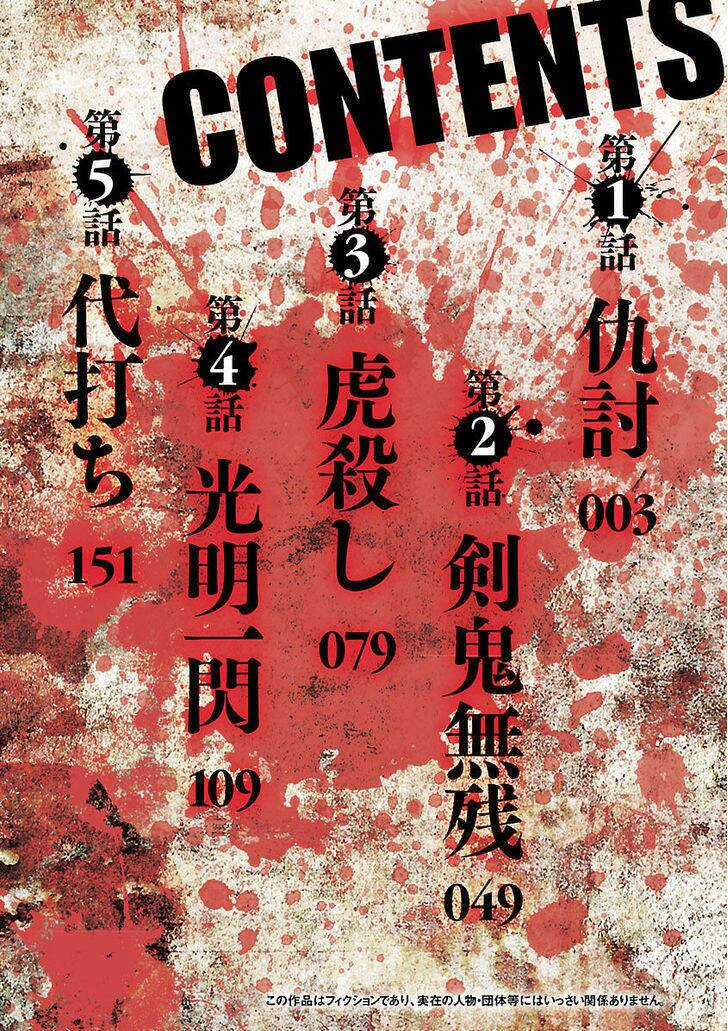 CONTENTS
第1話
仇討
003
第2話
剣鬼無残
049
第3話
虎殺し
079
第4話
光明一閃
109
第5話
代打ち
151
この作品はフィクションであり、実在の人物・団体等にはいっさい関係ありません。